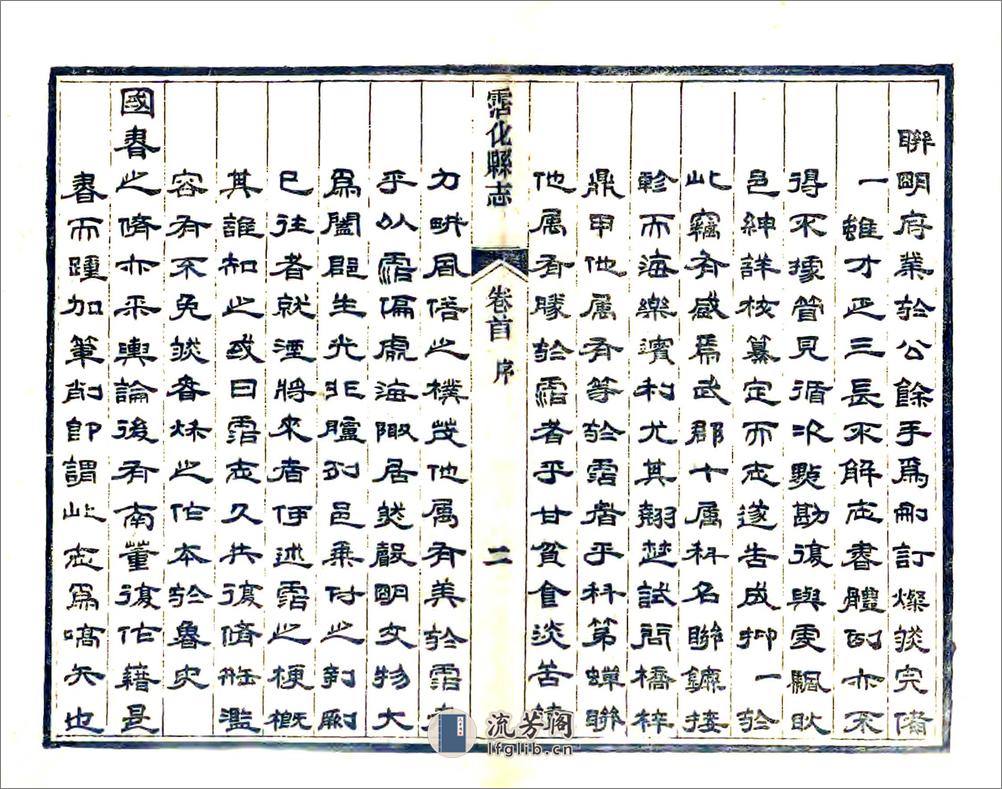 聯明府業於公餘手爲刪訂燦然完備
一雖才乏三長不解志書體例亦不
得不據管見循次點勘復與雯騆耿
邑紳詳核纂定而志遂告成抑一於
此竊有感焉武郡十属科名聯鑣接
軫而海樂濱利尤其翹楚試問橋梓
鼎甲他属有等於霑者乎科第蟬聯
他属有勝於霑者乎甘貧食淡苦
霑化縣志 卷首 序 二
力畊風俗之樸茂他属有美於霑
乎以霑偏處海陬居然聲明文物大
爲闔郡生光非臚列邑乘付之剞劂
已往者就湮將來者何述霑之梗概
其誰知之或曰霑志久失復脩濫
容有不免然春秋之作本於魯史
國書之脩亦采輿論後有南董復作藉是
書而踵加筆削即謂此志爲嚆矢也
流芳阁
lfglib.cn